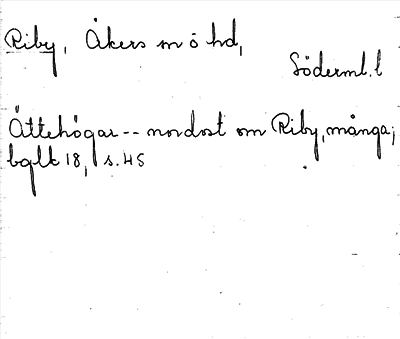 Riby, Åkers m ö hd,
Söderml. l
Ättehögar -- nordost om Riby, många;
bglt 18, s. 45